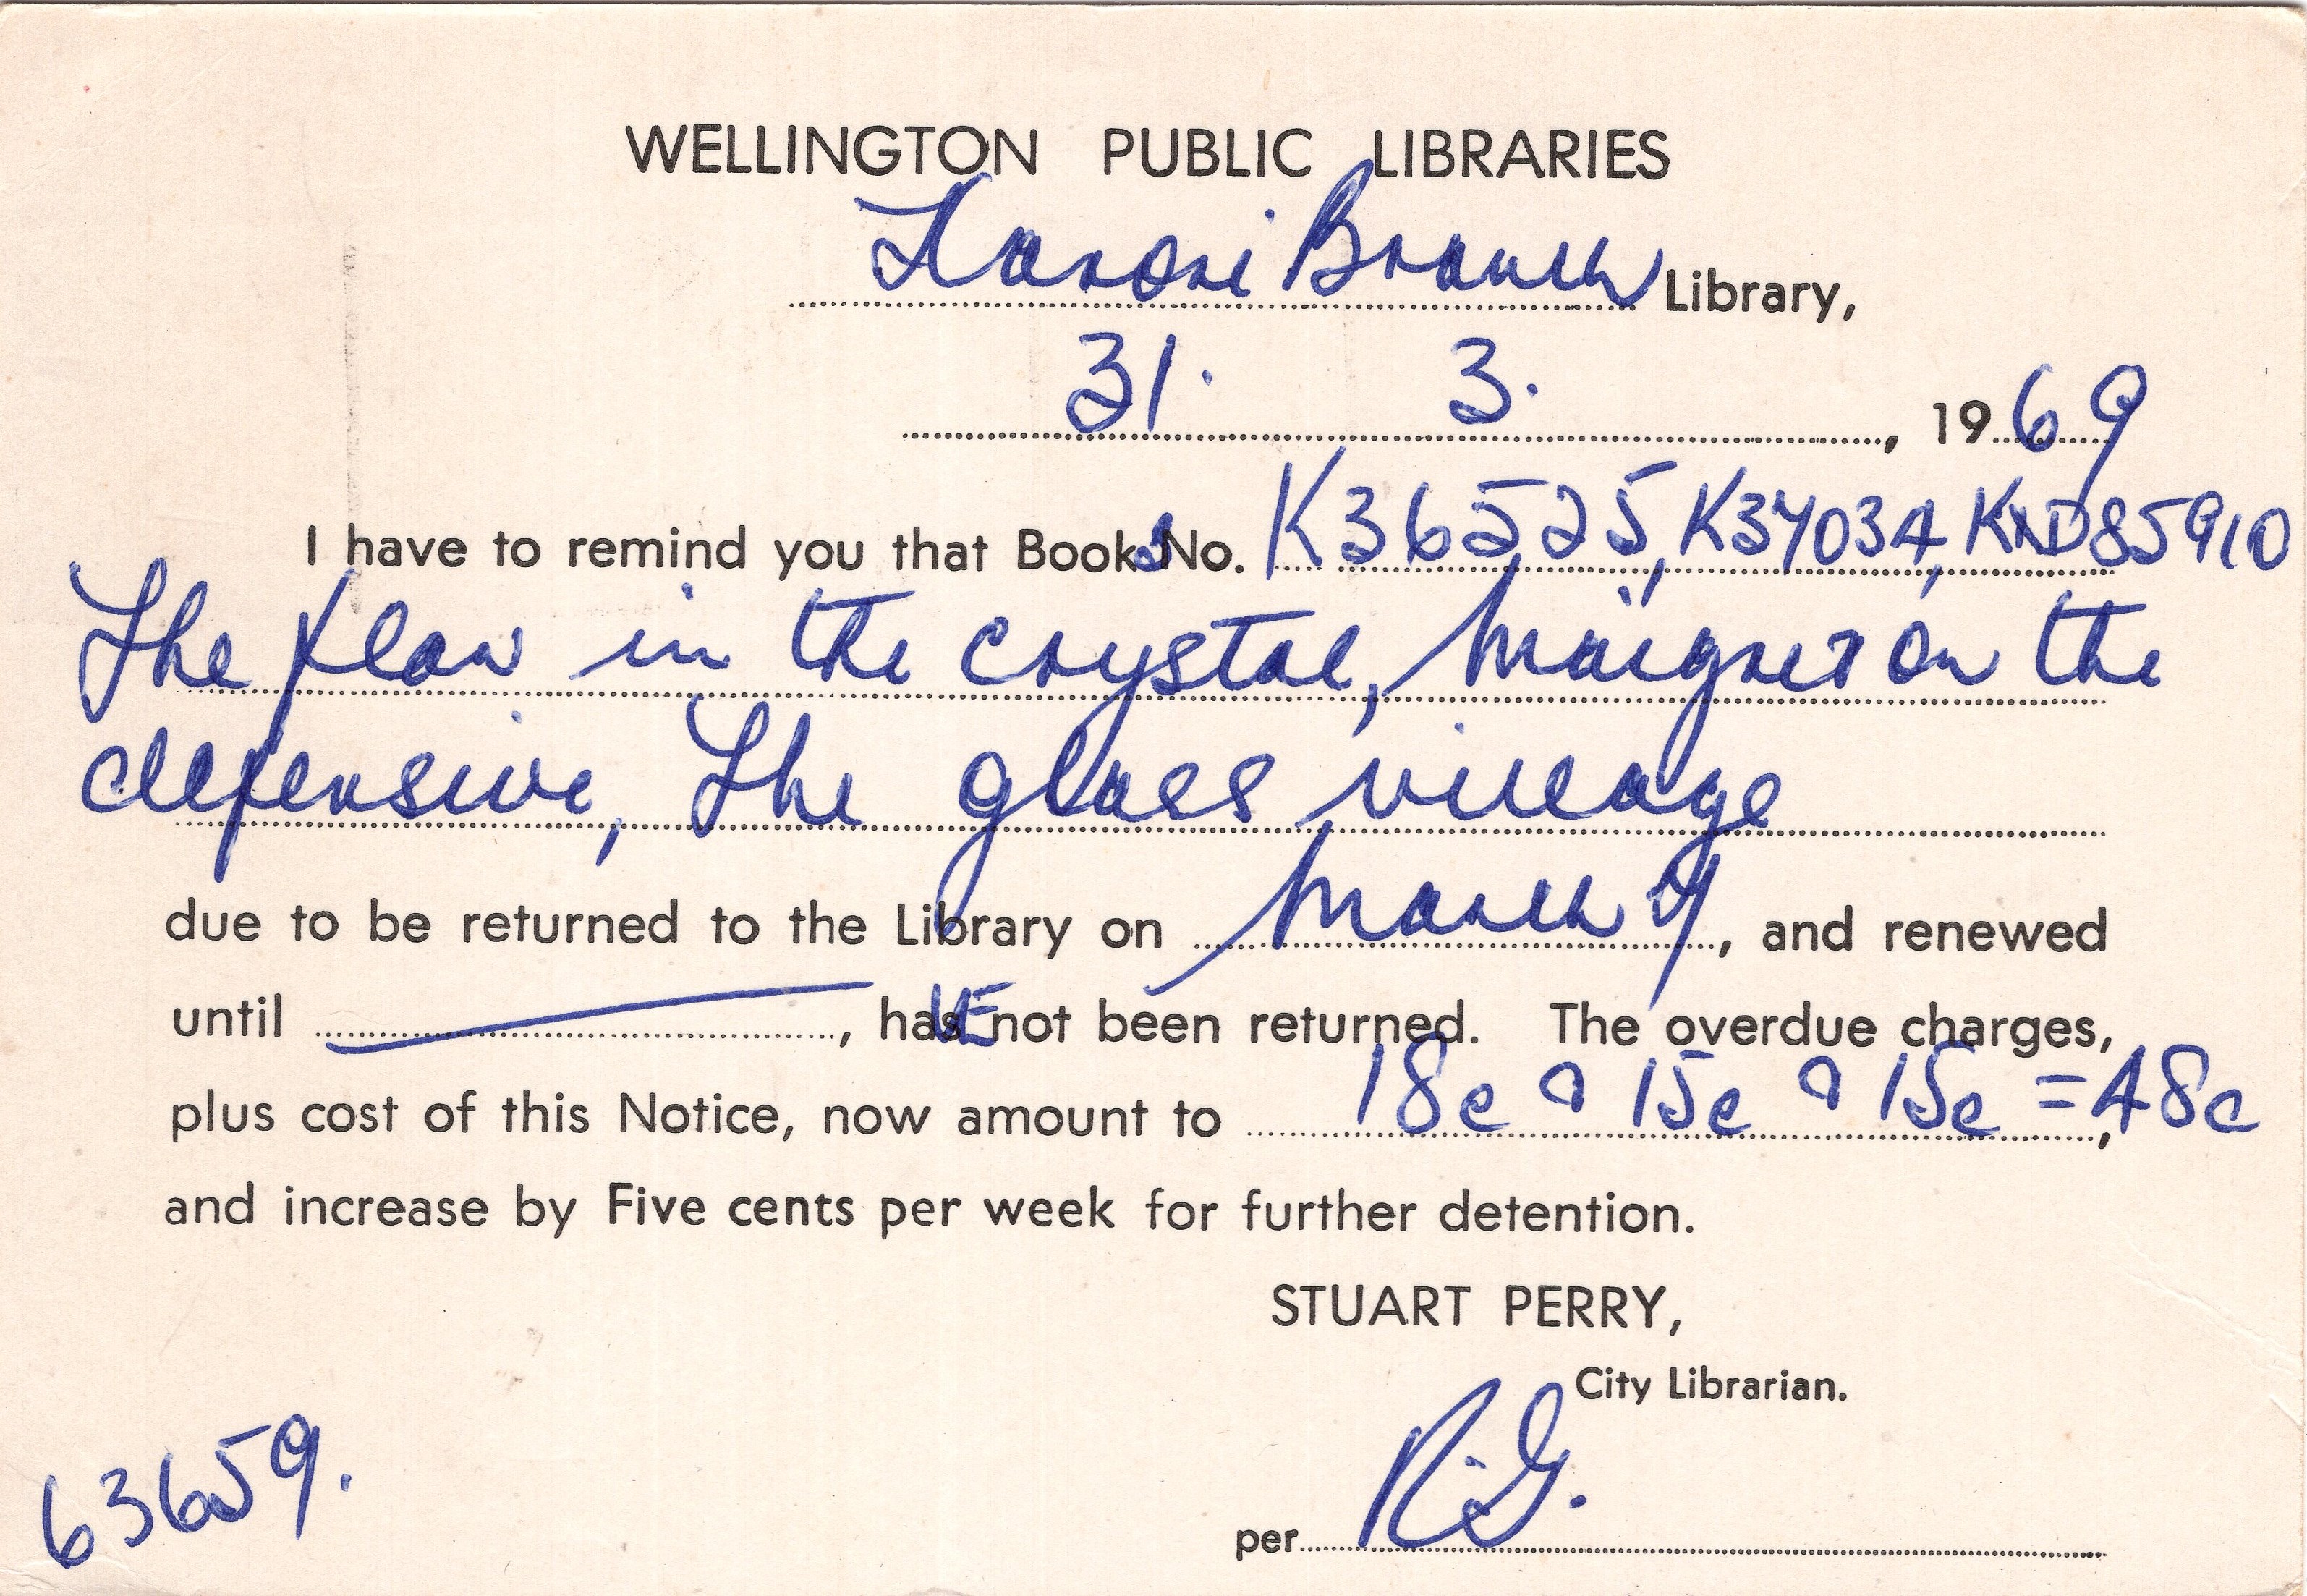 WELLINGTON PUBLIC LIBRARIES
Karori Branch Library,
31. 3. , 1969
I have to remind you that Books No. K36525, K34034, KND85910
The flaw in the crystal, Maigret on the
defensive, The glass village
due to be returned to the Library on March 9, and renewed
until , haVE not been returned. The overdue charges,
plus cost of this Notice, now amount to 18c 15c 15c = 48c,
and increase by Five cents per week for further detention.
STUART PERRY,
City Librarian.
63659.
per R.G.